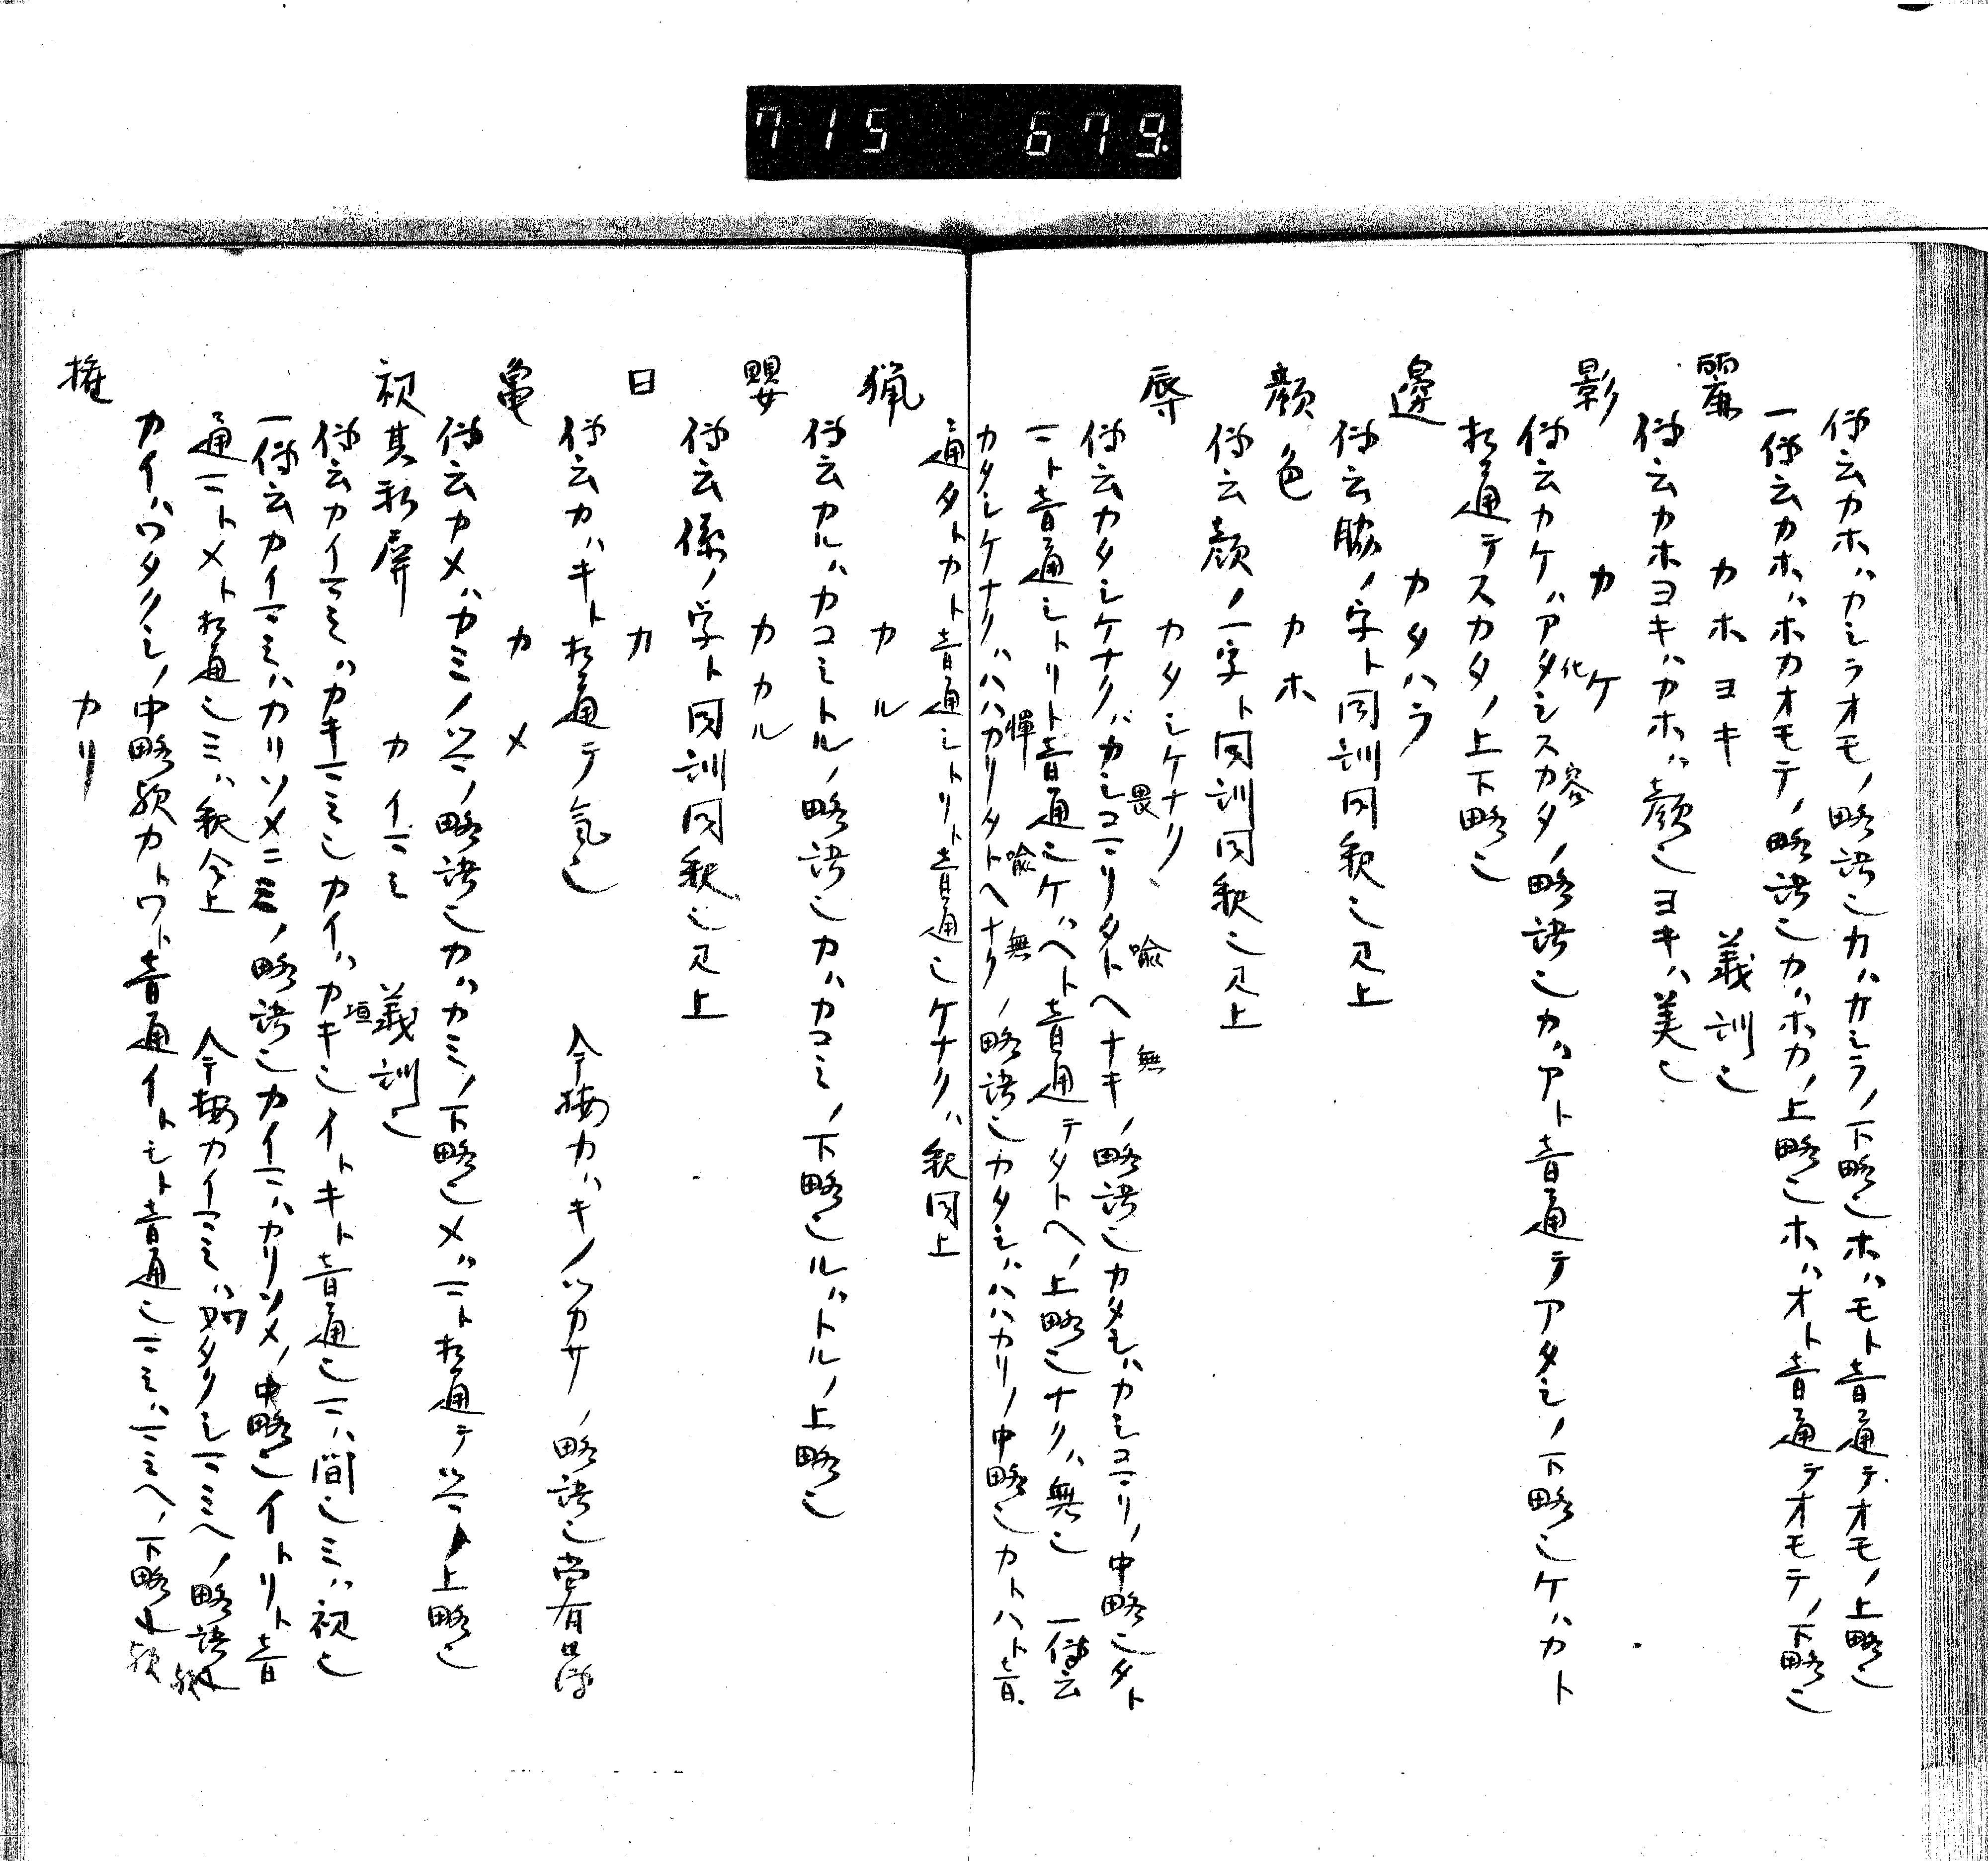 715 679.
伝云カホハカシラオモノ略語也カハカシラノ下略也ホハモト音通テオモノ上略也
一伝云カホハホカオモテノ略語也カハホカノ上略也ホハオト音通テオモテノ下略也
麗 カホヨキ 義訓也
伝云カホヨキハカホハ顔也ヨキハ美也
影 カケ
伝云カケハアタシ化スカタ容ノ略語也カハアト音通テアタシノ下略也ケハカト
相通テスカタノ上下略也
邊 カタハラ
伝云脇ノ字ト同訓同釈也見上
顔色 カホ
伝云顔ノ一字ト同訓同釈也見上
辱 カタシケナク
伝云カタシケナクハカシコマリ畏タトヘ喩ナキ無ノ略語也カタシハカシコマリノ中略也タト
マト音通シトリト音通也ケハヘト音通テタトヘノ上略也ナクハ無也 一伝云
カタシケナクハハハカリ憚タトヘ喩ナク無ノ略語也カタシハハハカリノ中略也カトハト音
通タトカト音通シトリト音通也ケナクハ釈同上
猟 カル
伝云カルハカコミトルノ略語也カハカコミノ下略也ルハトルノ上略也
嬰 カカル
伝云係ノ字ト同訓同釈也見上
日 カ
伝云カハキト相通テ気也 今按カハキノツカサノ略語也
亀 カメ
伝云カメハカミノツマノ略語也カハカミノ下略也メハマト相通テツマノ上略也
視其私屏 カイマミ 義訓也
伝云カイマミハカキマミ也カイハカキ垣也イトキト音通也マハ間也ミハ視也
一伝云カイマミハカリソメニミノ略語也カイマハカリソメノ中略也イトリト音
通マトメト相通也ミハ釈今上 今按カイマミハワタクシマミヘノ略語歟
カイハワタクシノ中略歟カトワト音通イトシト音通也マミハマミヘノ下略歟
権 カリ